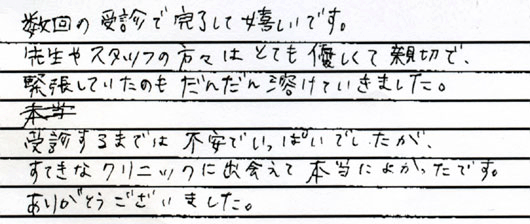 数回の受診で完了して嬉しいです。
先生やスタッフの方々はとても優しくて親切で、
緊張していたのもだんだん溶けていきました。
本当
受診するまでは不安でいっぱいでしたが、
すてきなクリニックに出会えて本当によかったです。
ありがとうございました。